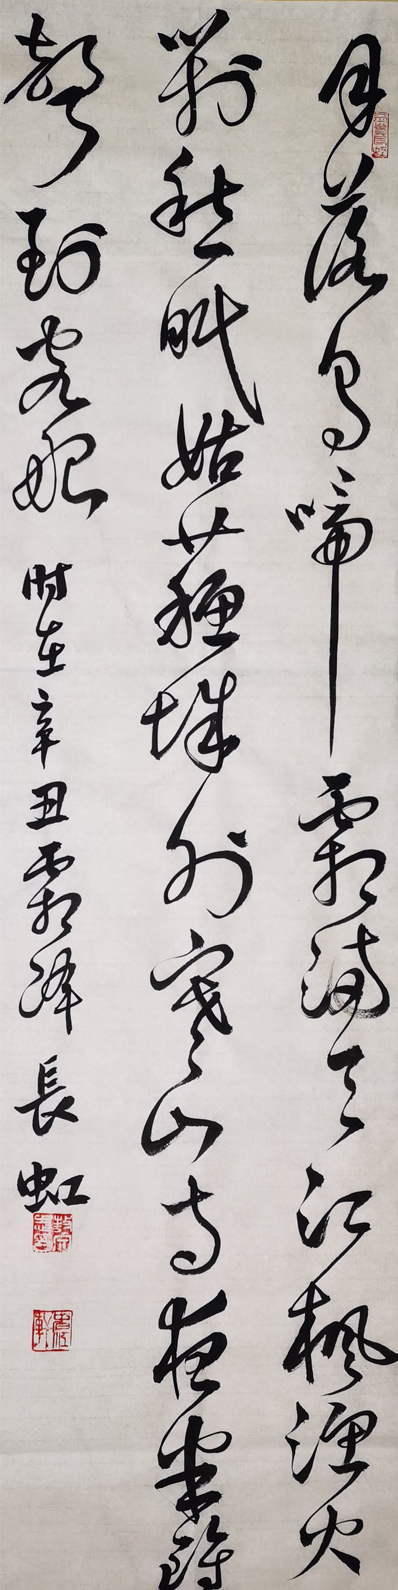 月落烏啼霜滿天江楓漁火
對愁眠姑蘇城外寒山寺夜半鐘
聲到客船 時在辛丑霜降 長虹